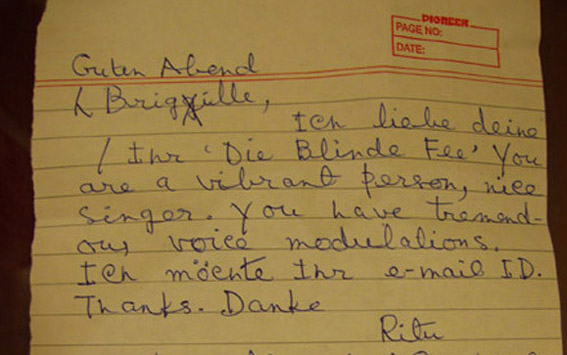 PIONEER
PAGE NO:
DATE:
Guten Abend
Ich liebe deine
/ Ihr 'Die Blinde Fee' You
are a vibrant person, nice
singer. You have tremend-
ous voice modulations.
Ich möcnte Ihr e-mail ID.
Thanks. Danke
Ritu